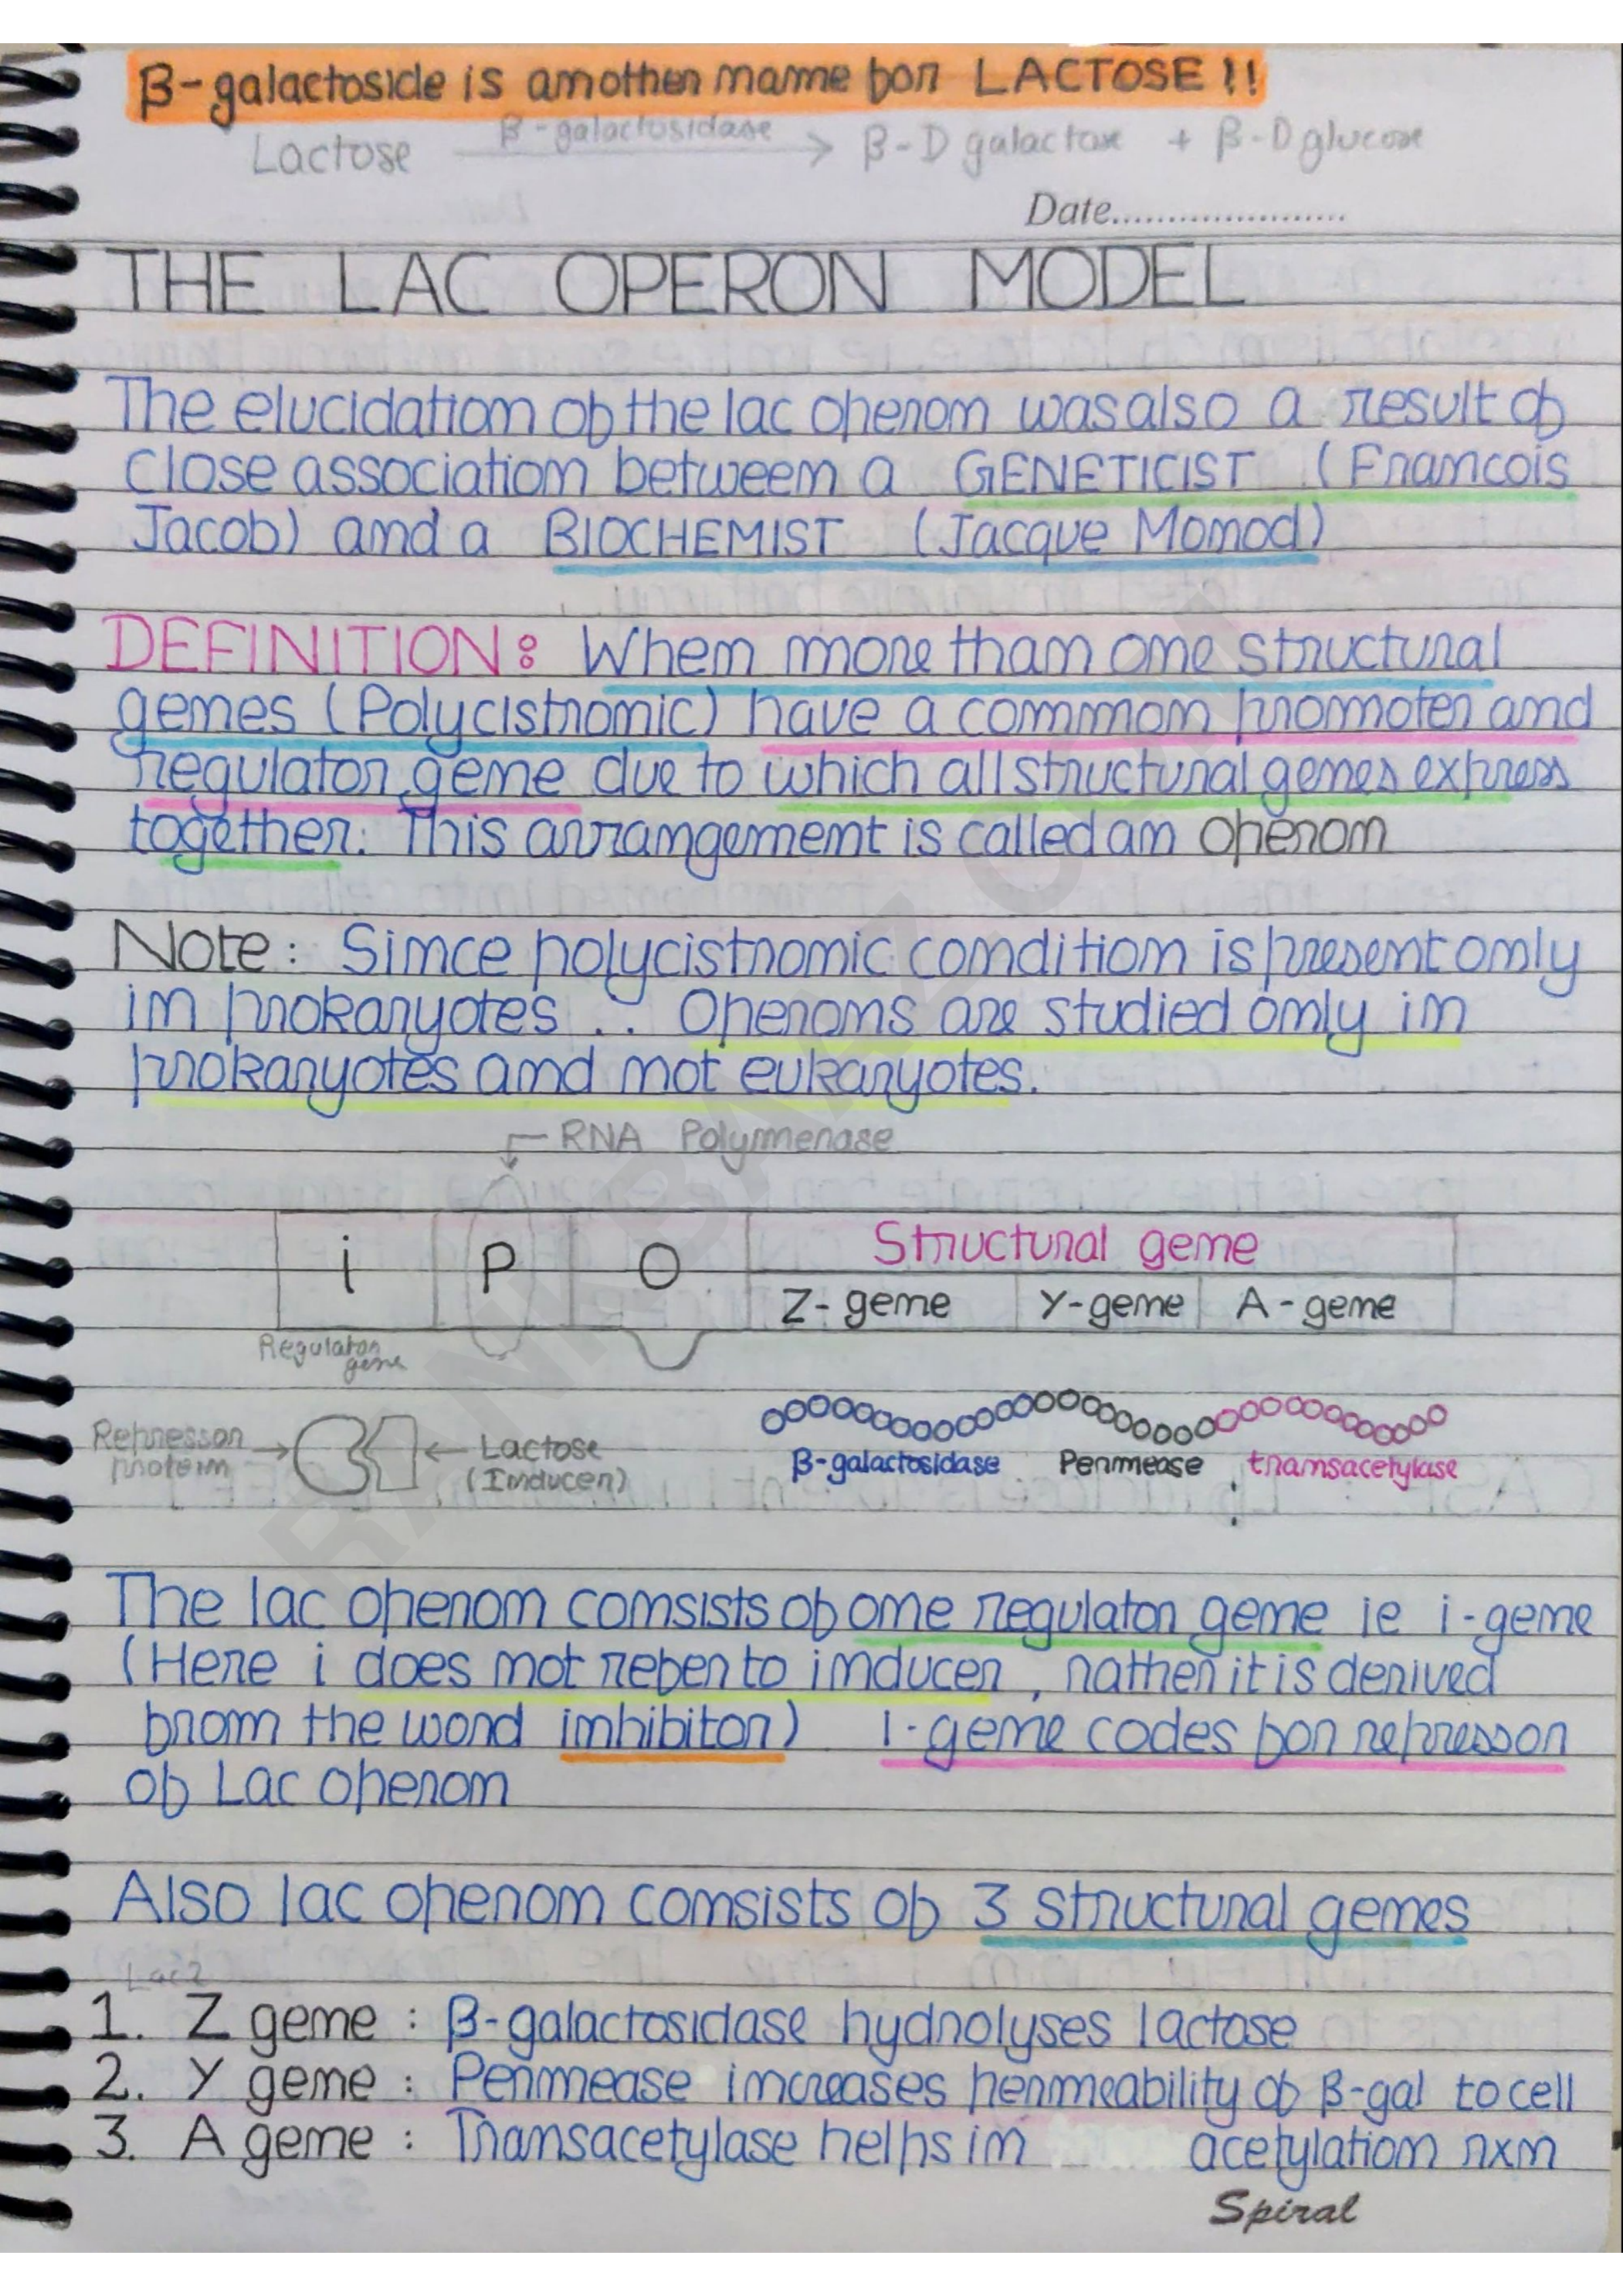 β-galactoside is another name for LACTOSE !!
Lactose β-galactosidase → β-D galactose + β-D glucose
Date......................
THE LAC OPERON MODEL
The elucidation of the lac operon was also a result of
close association between a GENETICIST (Francois
Jacob) and a BIOCHEMIST (Jacque Monod)
DEFINITION: When more than one structural
genes (Polycistronic) have a common promoter and
regulator gene due to which all structural genes express
together. This arrangement is called an operon
Note: Since polycistronic condition is present only
in prokaryotes .. Operons are studied only in
prokaryotes and not eukaryotes.
RNA Polymerase
i P O Structural gene
Z- gene Y-gene A - gene
Regulator
gene
Repressor
protein
Lactose
(Inducer)
β-galactosidase Permease transacetylase
The lac operon consists of one regulator gene ie i-gene
(Here i does not refer to inducer, rather it is derived
from the word inhibitor) I-gene codes for repressor
of Lac operon
Also lac operon consists of 3 structural genes
Lac Z
1. Z gene : β-galactosidase hydrolyses lactose
2. Y gene : Permease increases permeability of β-gal to cell
3. A gene : Transacetylase helps in acetylation rxn
Spiral
RANKBAAZ.COM